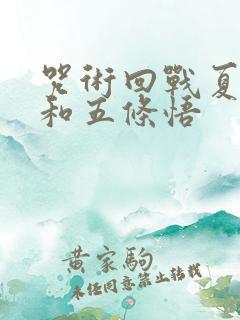 咒術回戰夏
和五條悟
黃家駒
未任同意禁止转载